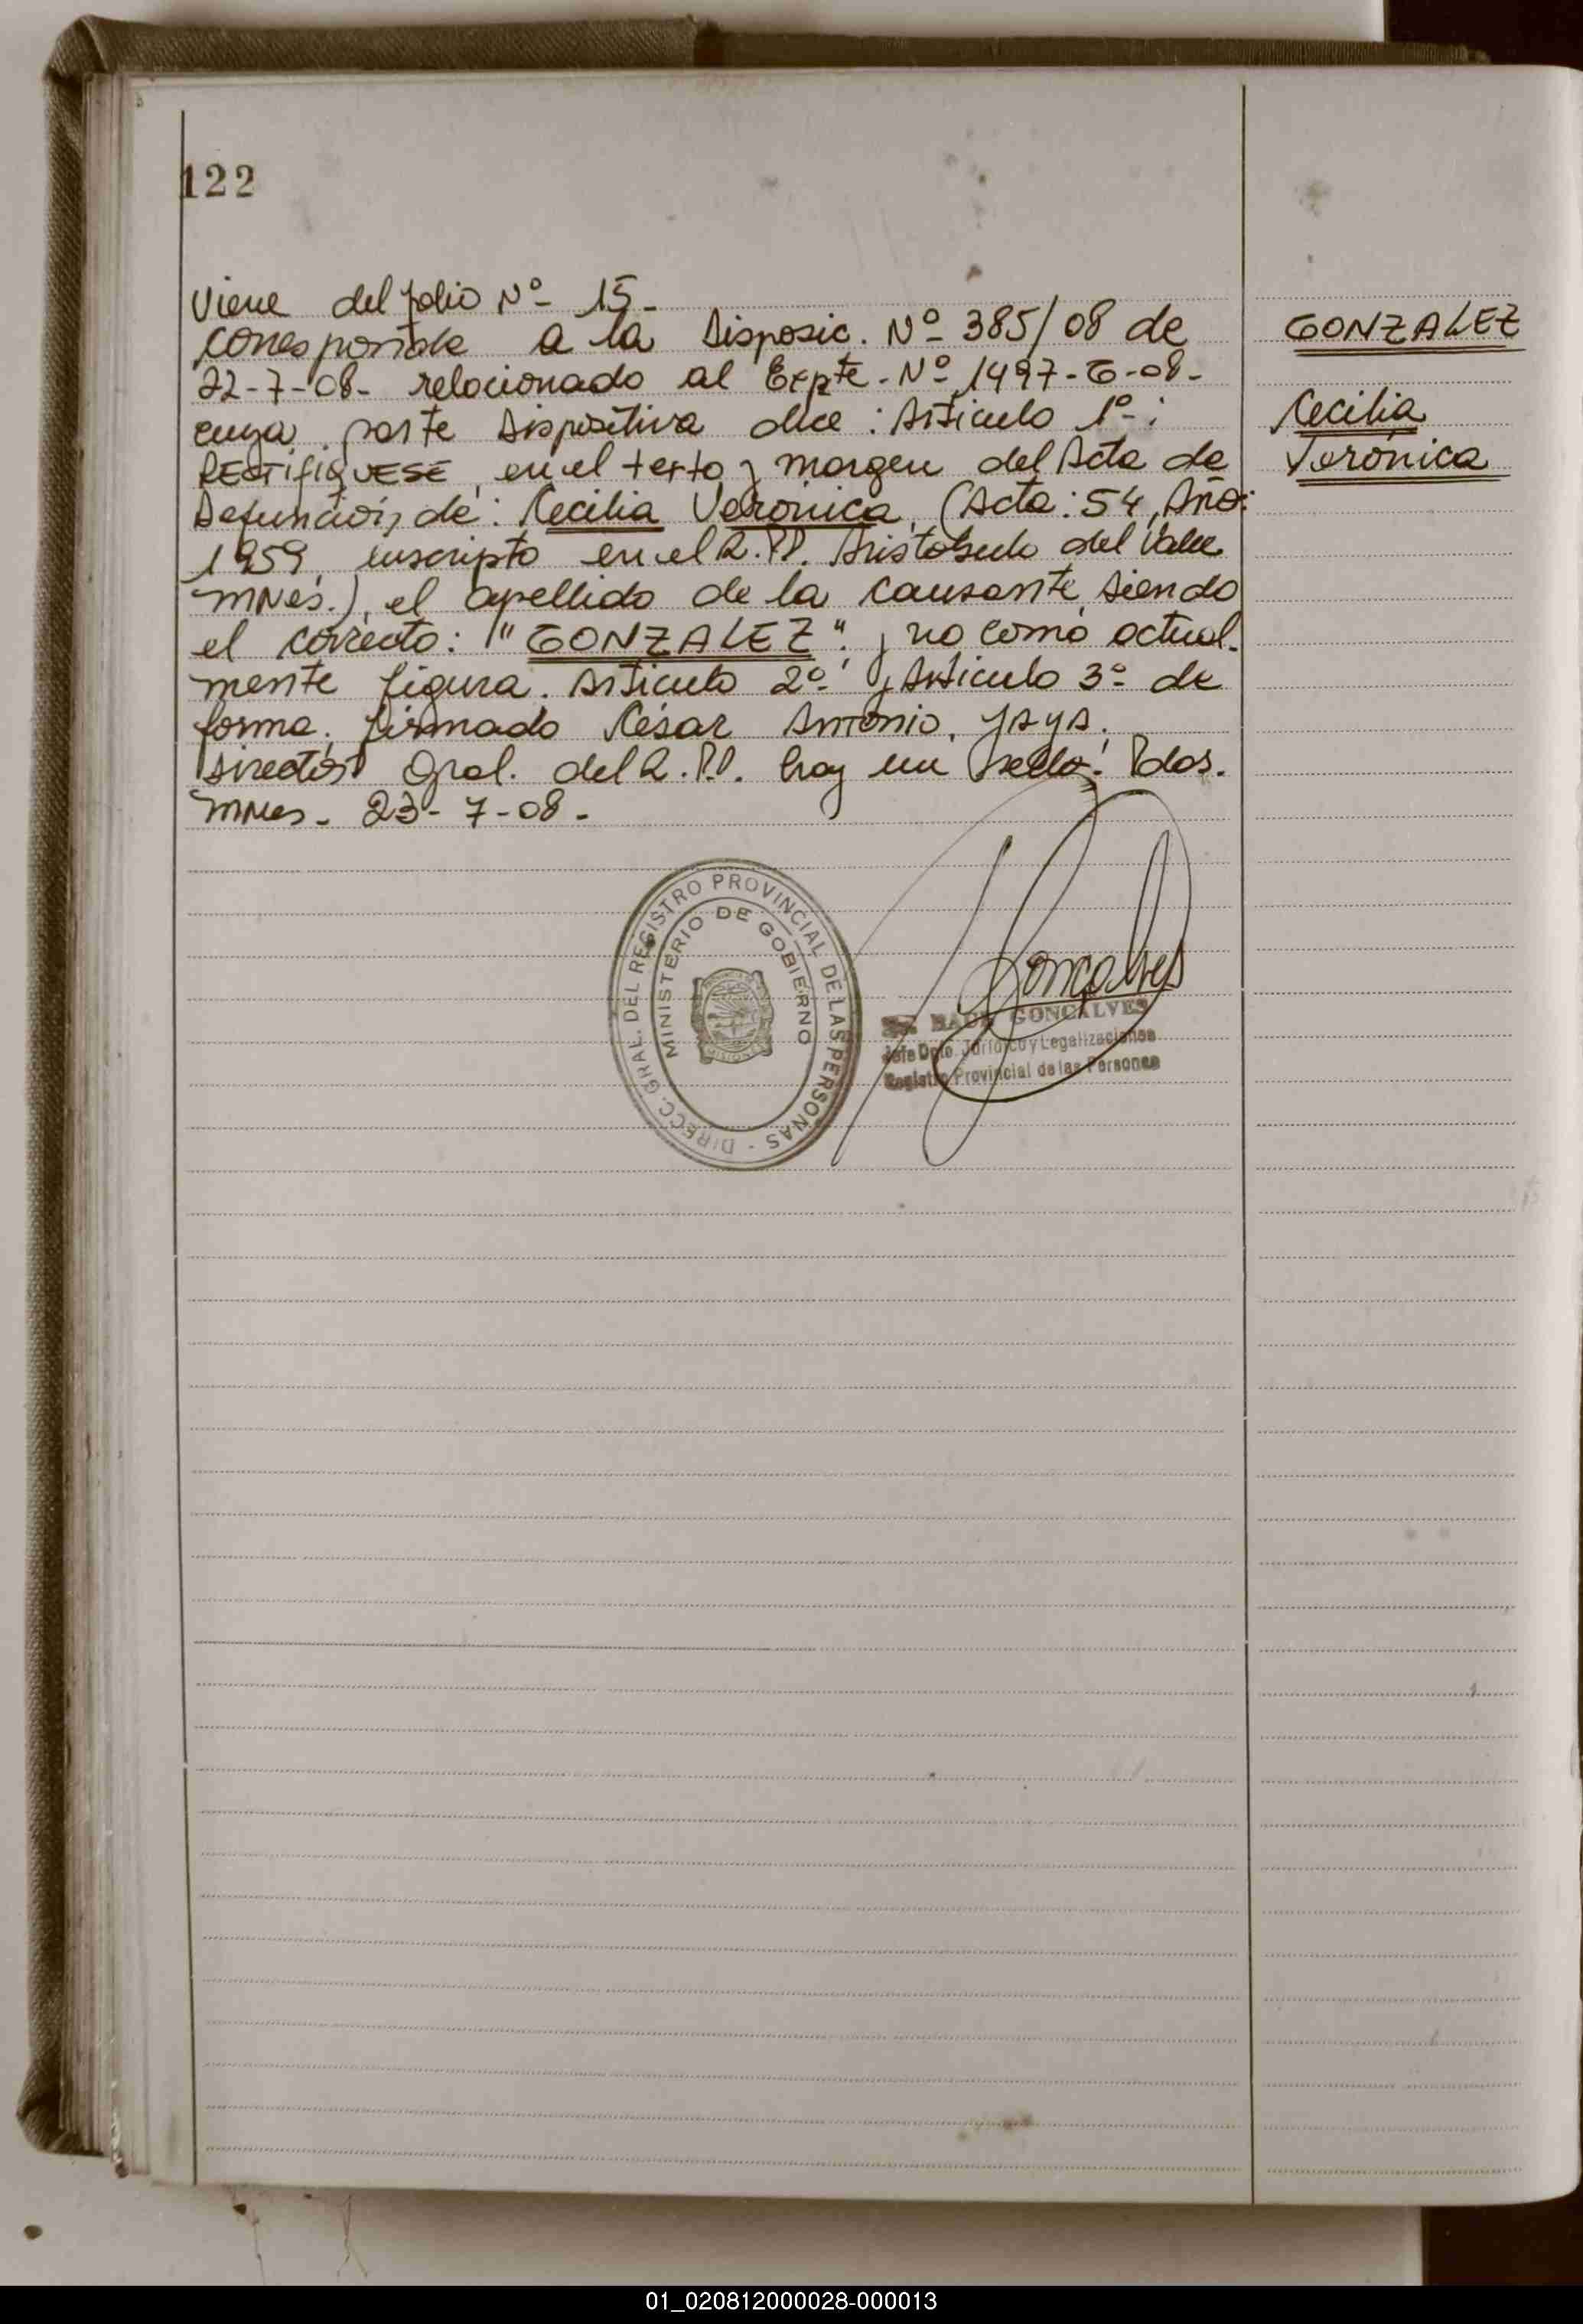 122
Viene del folio Nº 15-
corresponde a la Disposic. Nº 385/08 de
22-7-08- relacionado al Expte-Nº 1497-G-08-
cuya parte Dispositiva dice: Articulo 1º:
RECTIFIQUESE, en el texto y margen del Acta de
Defunción, de: Cecilia Verónica, (Acta: 54, Año:
1959, inscripto en el R.PP. Aristobulo del Valle
MNes.), el apellido de la causante, siendo
el correcto: "GONZALEZ". y no como actual-
mente figura. Articulo 2º y Articulo 3º de
forma. firmado César Antonio, YAYA.
Director Gral. del R.PP. hay un sello. Pdas.
MNes- 23-7-08-
GONZALEZ
Cecilia
Verónica
DIRECC. GRAL. DEL REGISTRO PROVINCIAL DE LAS PERSONAS -
MINISTERIO DE GOBIERNO
MISIONES
Goncalves
RAUL GONCALVES
Jefe Dpto. Jurídico y Legalizaciones
Registro Provincial de las Personas
01_020812000028-000013